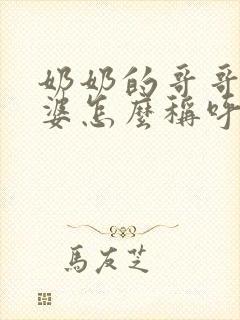 奶奶的哥哥
婆怎麼稱呼
馬友芝